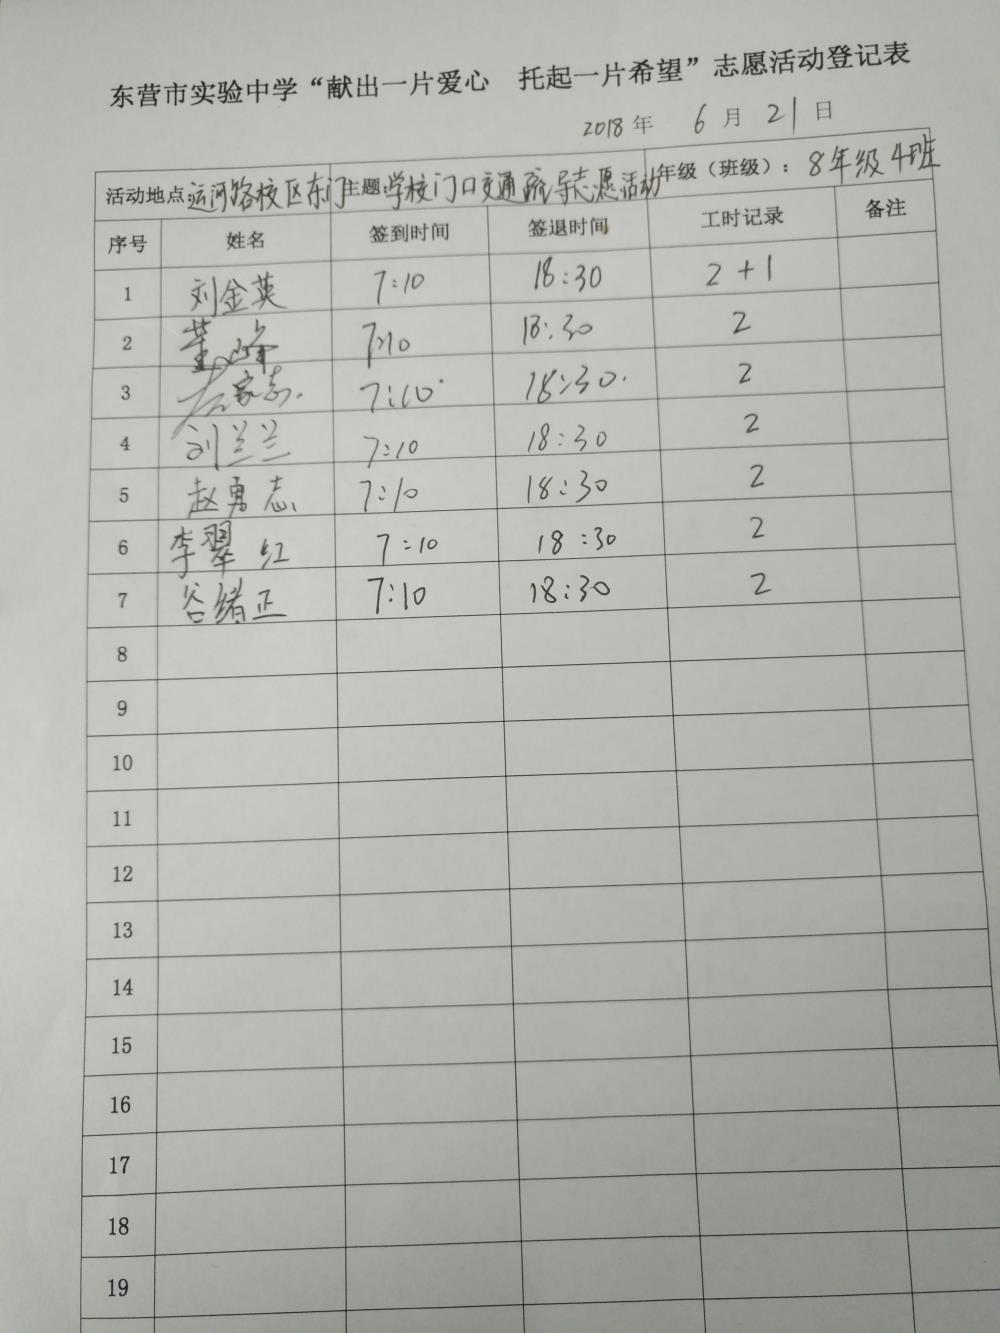 东营市实验中学“献出一片爱心 托起一片希望”志愿活动登记表
2018年 6月21日
活动地点:运河路校区东门 主题:学校门口交通疏导志愿活动 年级（班级）：8年级4班
序号 姓名 签到时间 签退时间 工时记录 备注
1 刘金英 7:10 18:30 2+1
2 董峰 7:10 18:30 2
3 家志 7:10 18:30. 2
4 刘兰兰 7:10 18:30 2
5 赵勇志 7:10 18:30 2
6 李翠红 7:10 18:30 2
7 谷绪正 7:10 18:30 2
8
9
10
11
12
13
14
15
16
17
18
19